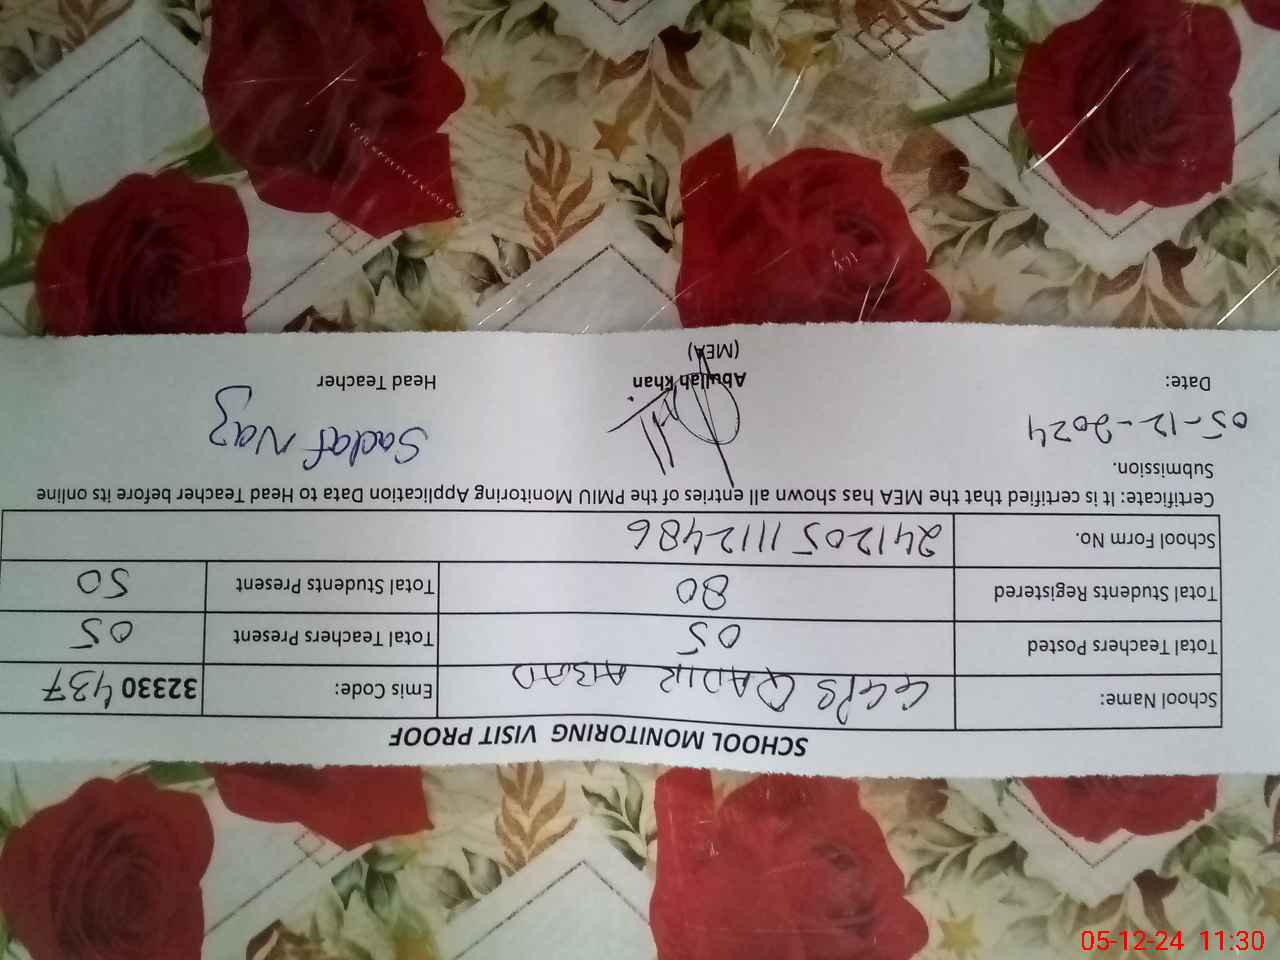 SCHOOL MONITORING VISIT PROOF
School Name: GGPS QADIR ABAD Emis Code: 32330437
Total Teachers Posted 05 Total Teachers Present 05
Total Students Registered 80 Total Students Present 50
School Form No. 2412051112486
Certificate: It is certified that the MEA has shown all entries of the PMIU Monitoring Application Data to Head Teacher before its online
Submission.
05-12-2024 Sadaf Naz
Date: Abullah khan Head Teacher
(MEA)
05-12-24 11:30